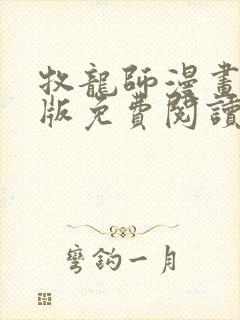 牧龍師漫畫
版免費閱讀
彎鈎一月